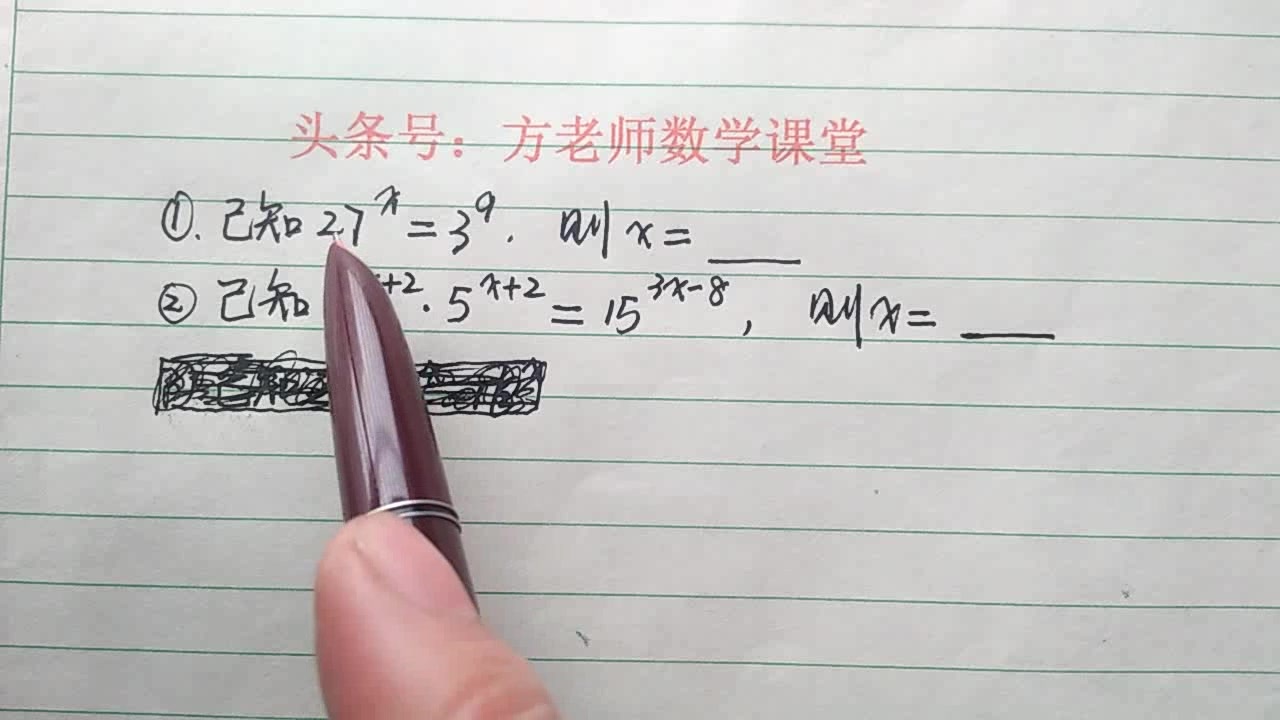 头条号：方老师数学课堂
①. 已知 27^x = 3^9. 则 x = ____
② 已知 +2 · 5^{x+2} = 15^{3x-8}, 则 x = ____